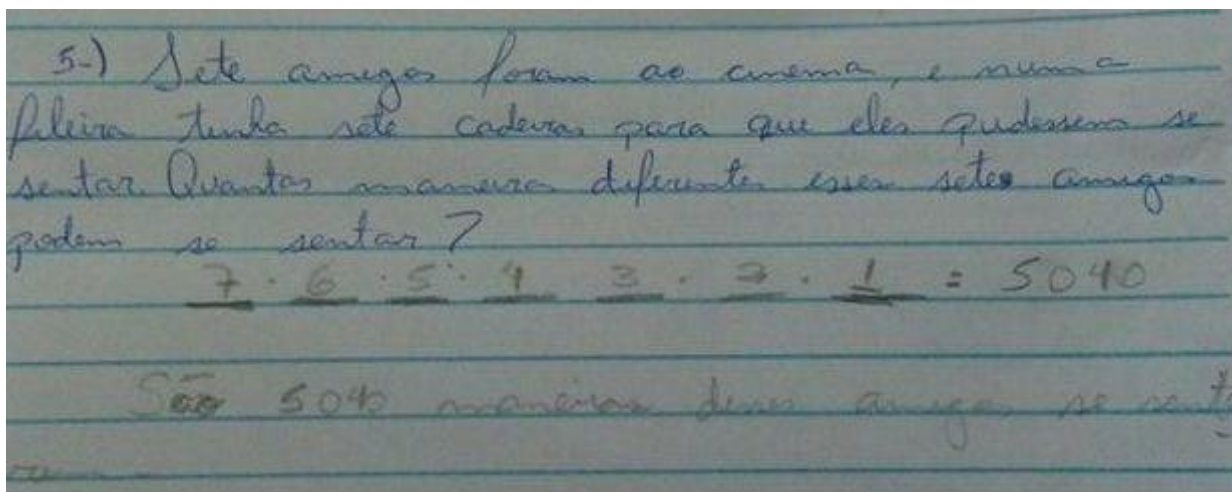 5-) Sete amigos foram ao cinema, e numa
fileira tinha sete cadeiras para que eles pudessem se
sentar. Quantas maneira diferentes esses setes amigos
podem se sentar?
7 . 6 . 5 . 4 3 . 2 . 1 = 5040
São 5040 maneiras desses amigos se sent